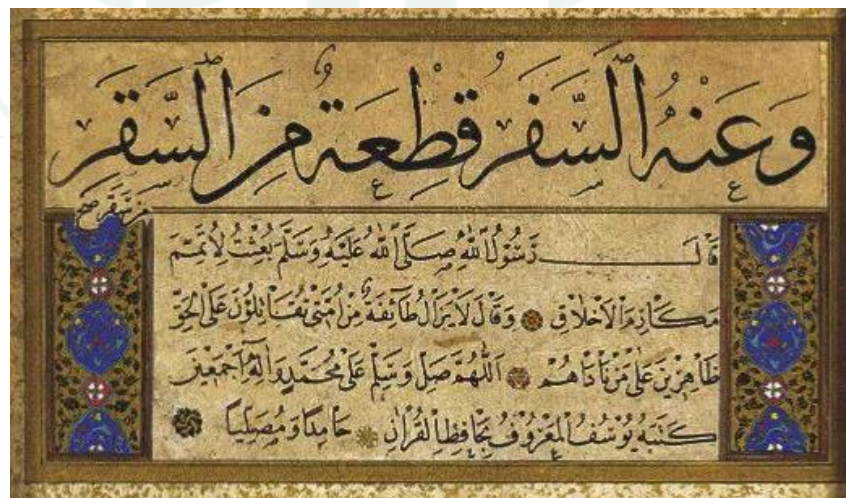 وَعَنْهُ ٱلسَّفَرُ قِطْعَةٌ مِنَ ٱلسَّقَرِ
قَالَ رَسُولُ اللهِ صَلَّى اللهُ عَلَيْهِ وَسَلَّمَ بُعِثْتُ لِأُتَمِّمَ
مَكَارِمَ الْأَخْلَاقِ وَقَالَ لَا يَزَالُ طَائِفَةٌ مِنْ أُمَّتِي يُقَاتِلُونَ عَلَى الْحَقِّ
ظَاهِرِينَ عَلَى مَنْ نَاوَاهُمْ اَللّٰهُمَّ صَلِّ وَسَلِّمْ عَلَى مُحَمَّدٍ وَاٰلِهِ اَجْمَعِينَ
كَتَبَهُ يُوسُفُ الْمَعْرُوفُ بِحَافِظِ الْقُرْاٰنِ حَامِدًا وَمُصَلِّيًا